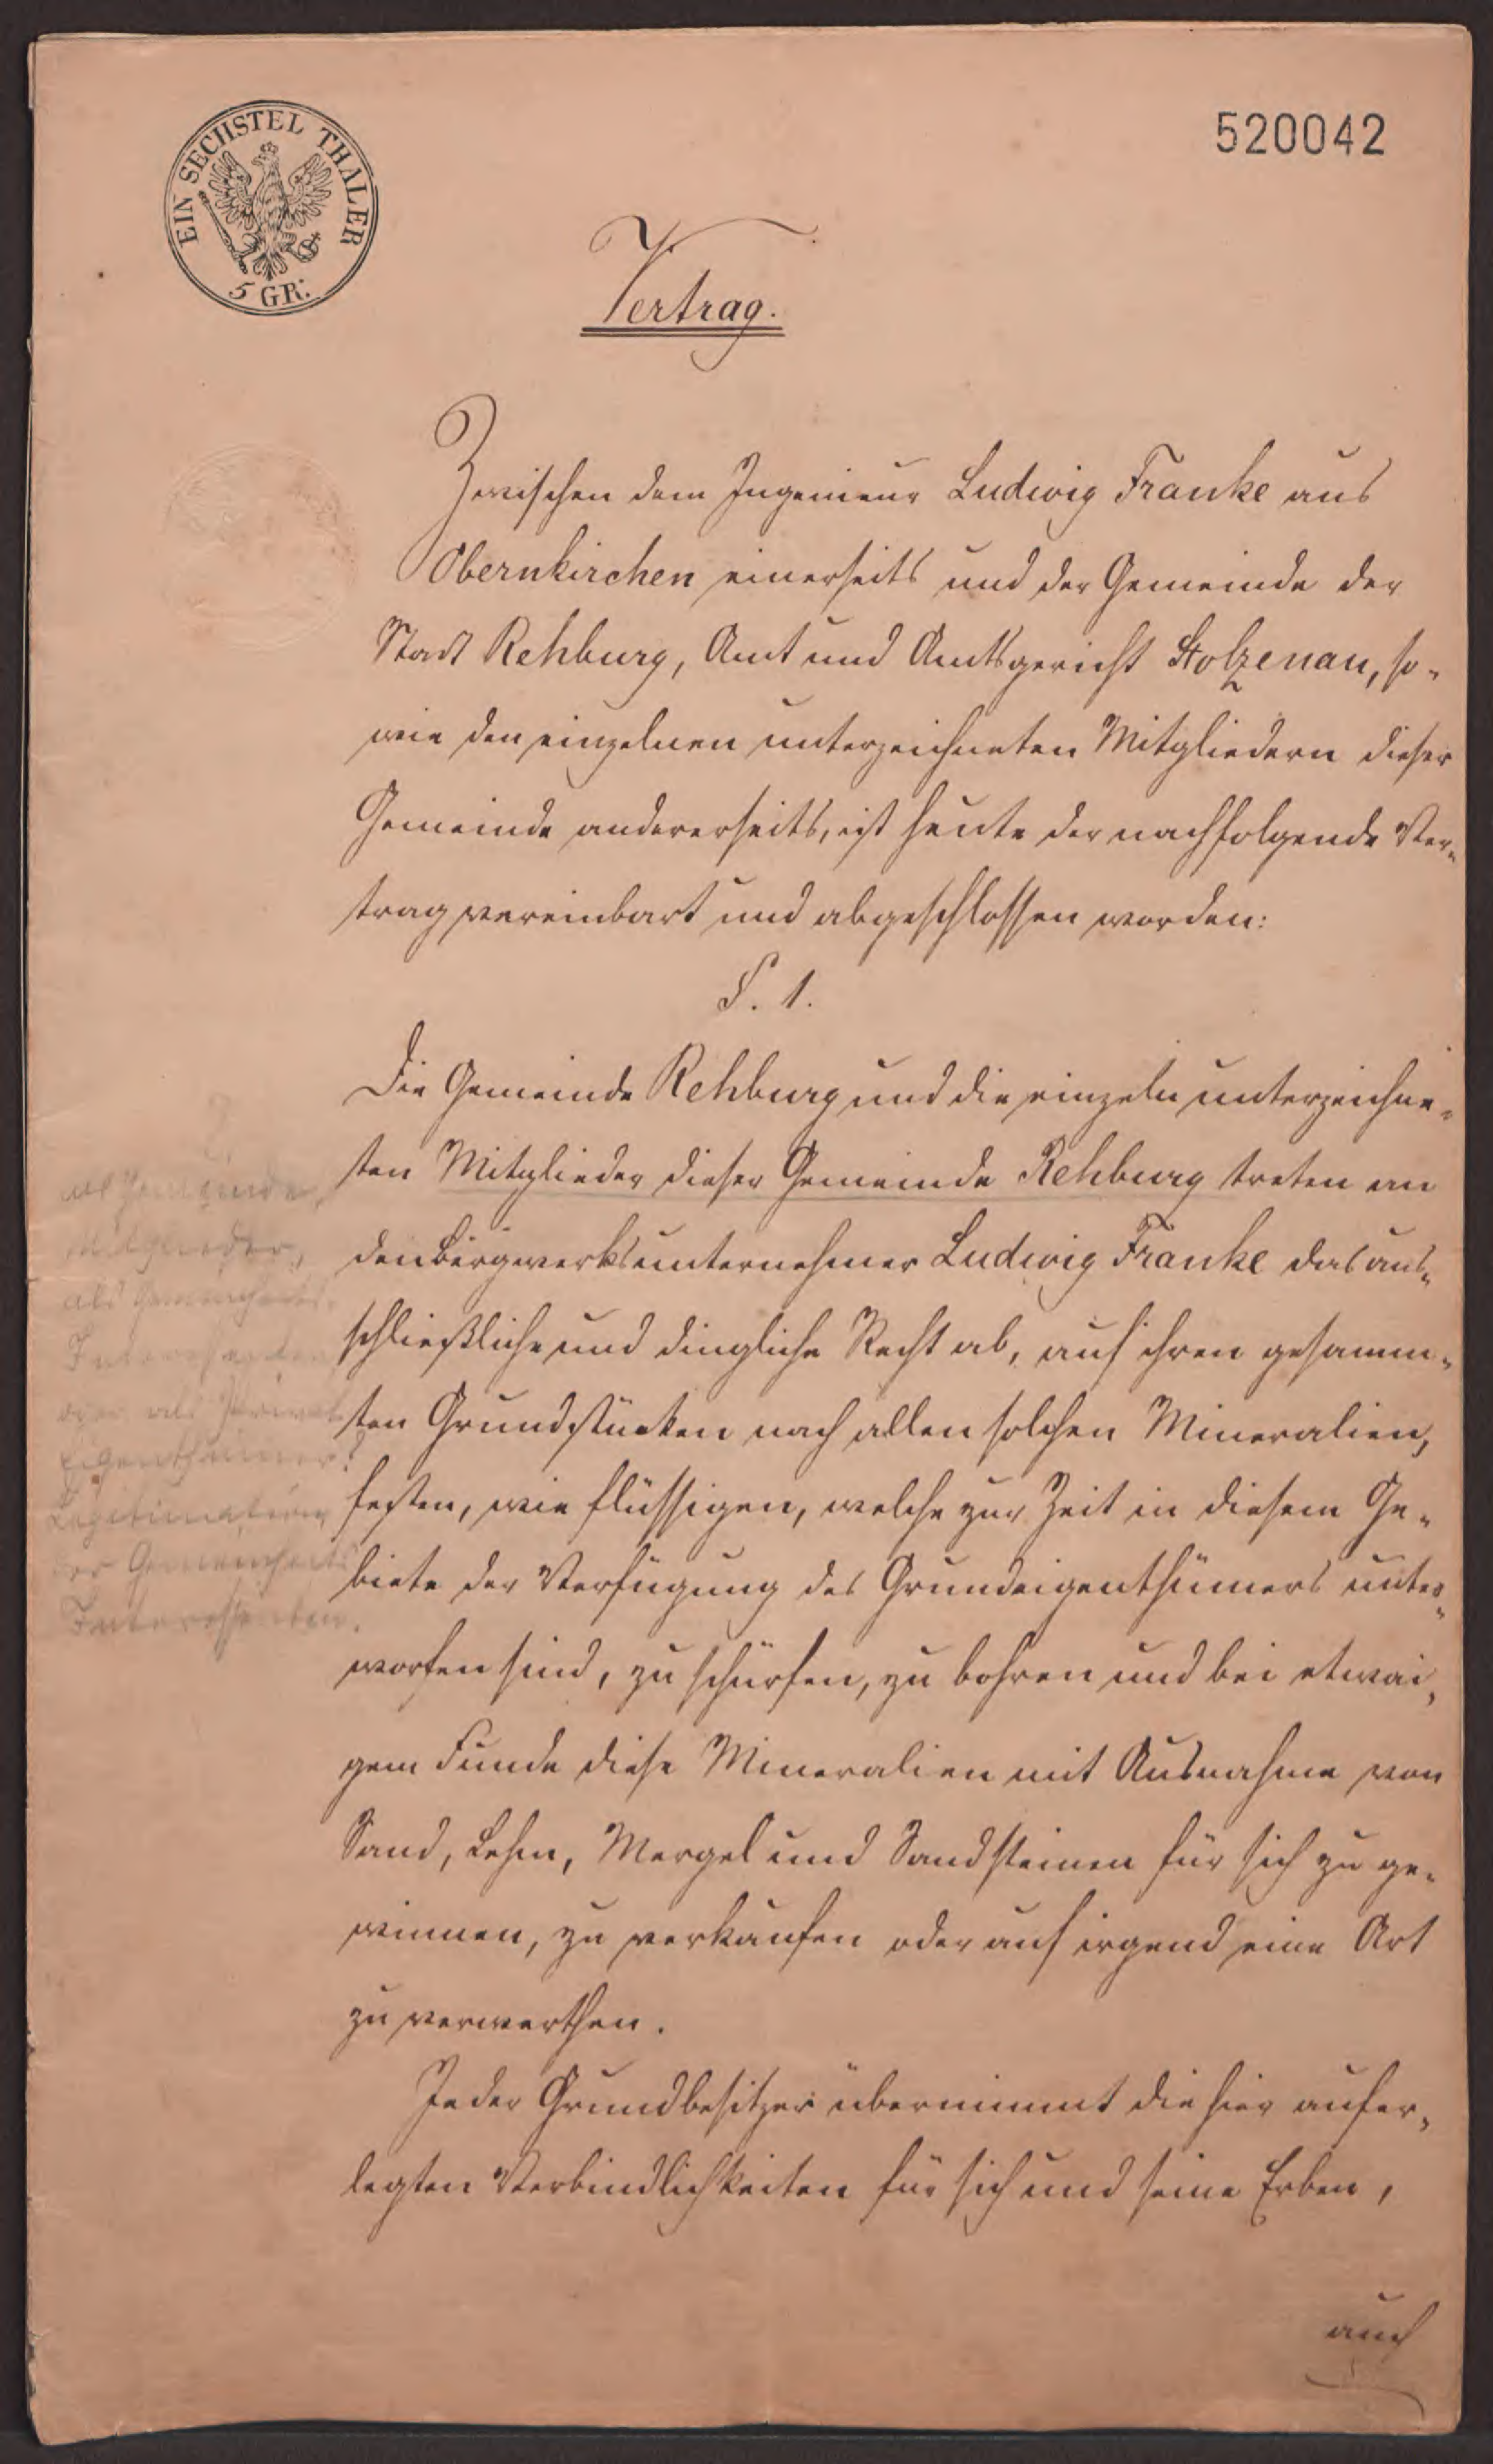 EIN SECHSTEL THALER
5 GR.
520042
Vertrag.
Zwischen dem Ingenieur Ludwig Franke aus
Obernkirchen einerseits und der Gemeinde der
Stadt Rehburg, Amt und Amtsgericht Stolzenau, so-
wie den einzelnen unterzeichneten Mitgliedern dieser
Gemeinde andererseits, ist heute der nachfolgende Ver-
trag vereinbart und abgeschlossen worden:
§. 1.
Die Gemeinde Rehburg und die einzeln unterzeichne-
ten Mitglieder dieser Gemeinde Rehburg treten an
den Bergwerksunternehmer Ludwig Franke das aus-
schließliche und dingliche Recht ab, auf ihren gesamm-
ten Grundstücken nach allen solchen Mineralien,
festen, wie flüssigen, welche zur Zeit in diesem Ge-
biete der Verfügung des Grundeigenthümers unter-
worfen sind, zu schürfen, zu bohren und bei etwai-
gem Funde diese Mineralien mit Ausnahme von
Sand, Lehm, Mergel und Sandsteinen für sich zu ge-
winnen, zu verkaufen oder auf irgend eine Art
zu verwerthen.
Jeder Grundbesitzer übernimmt die hier aufer-
legten Verbindlichkeiten für sich und seine Erben,
auch
als Gemeinde
Mitglieder,
als Gemeinheits-
Interessenten
oder als Privat
Eigenthümer?
Legitimation
der Gemeinheits
Interessenten.